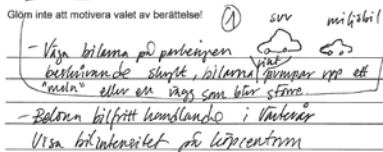 Glöm inte att motivera valet av berättelse!
① SUV miljöbil
- Väga bilarna på parkeringen
beskrivande skylt, bilarna pumpar upp ett
"moln" eller en vägg som blir större.
- Belöna bilfritt handlande i
Visa bilintensitet på köpcentrum